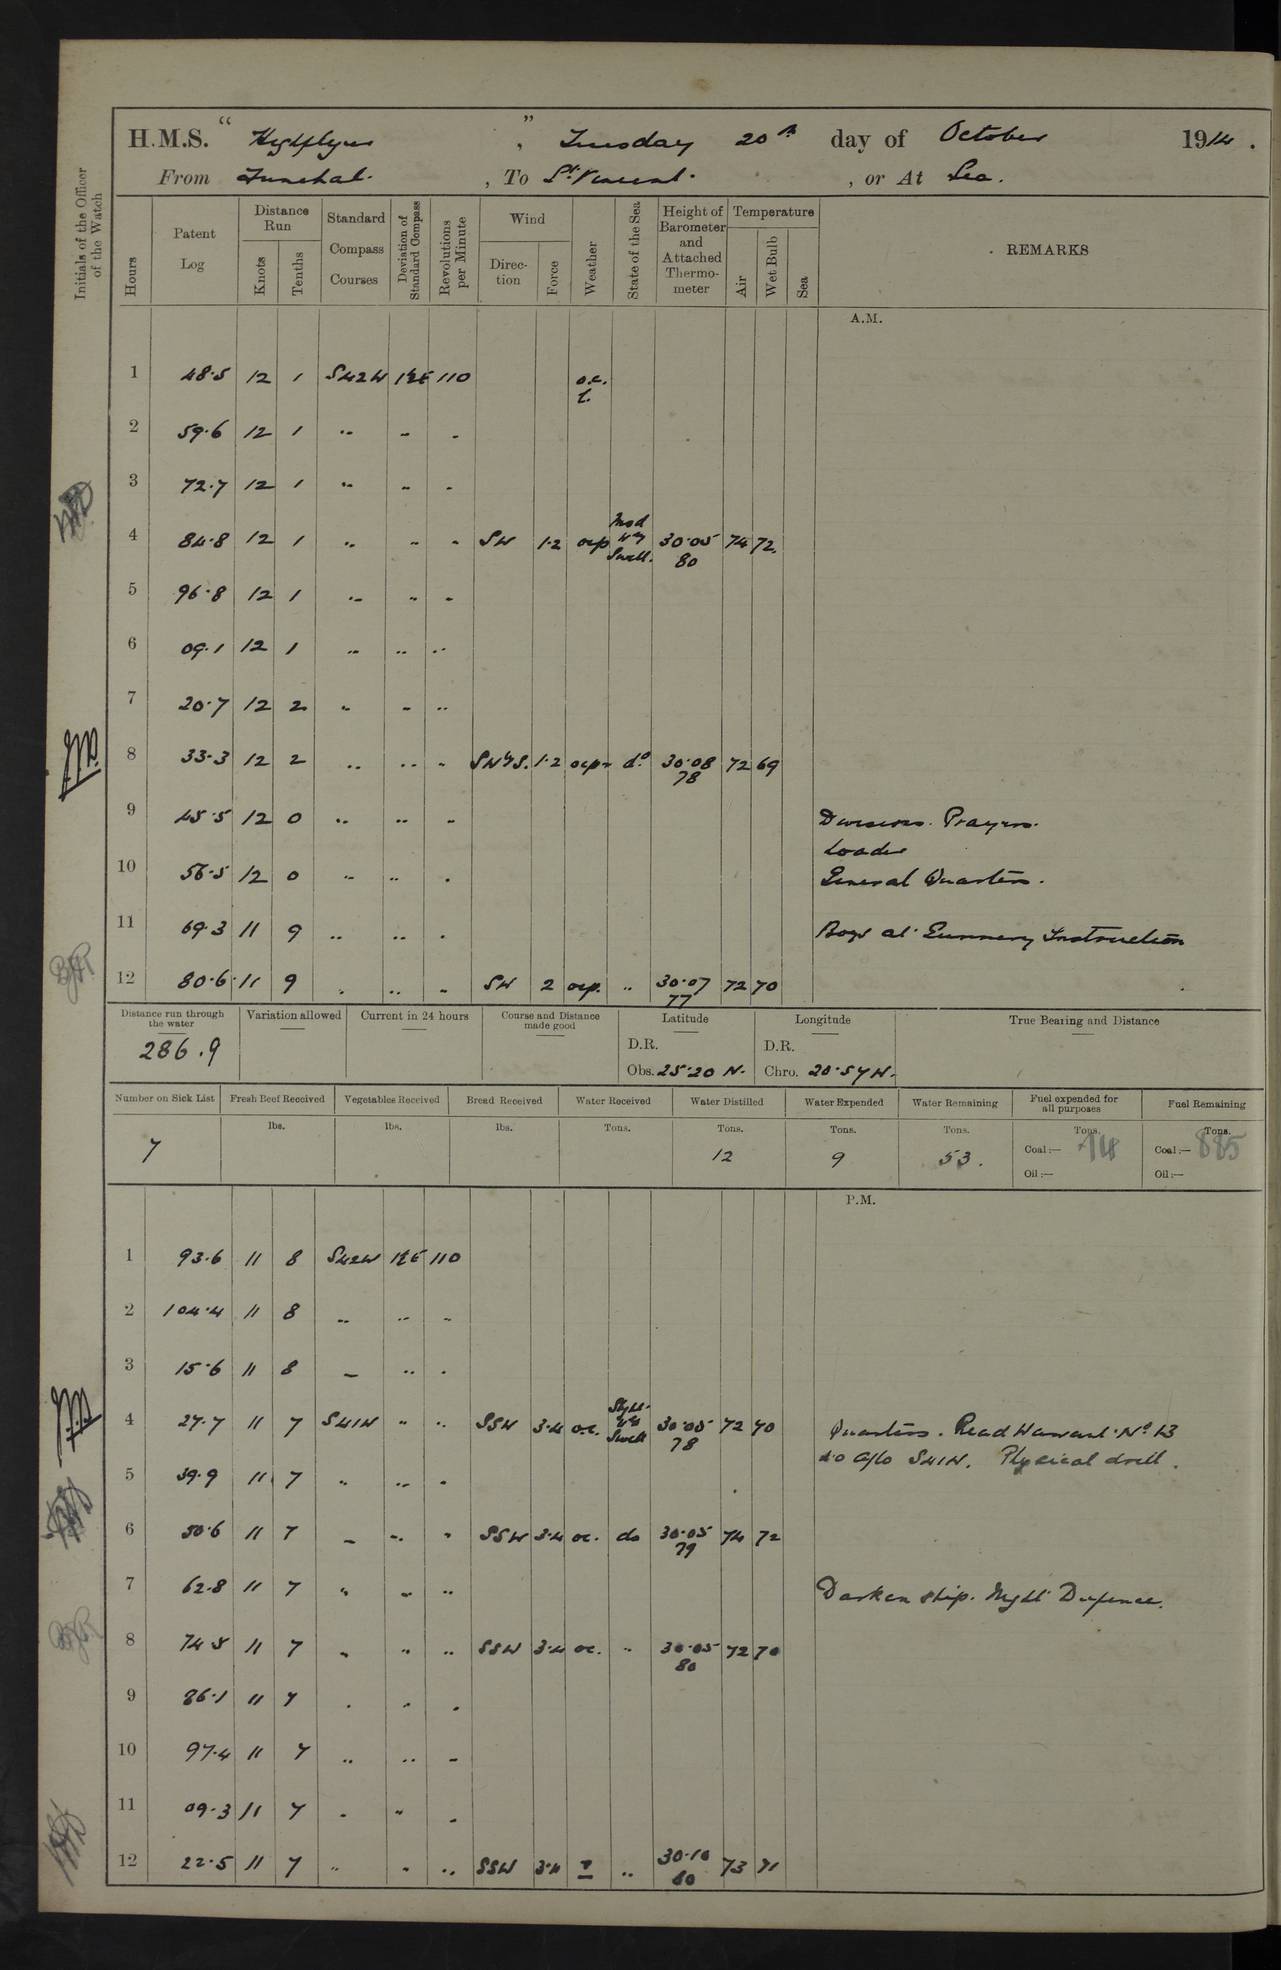 H.M.S. " Highflyer ", Tuesday 20th day of October 1914.
From Funchal. , To St. Vincent. , or At Sea.
Initials of the Officer of the Watch
Hours Patent Log Distance Run Knots Tenths Standard Compass Courses Deviation of Standard Compass Revolutions per Minute Wind Direction Force Weather State of the Sea Height of Barometer and Attached Thermometer Temperature Air Wet Bulb Sea REMARKS
A.M.
1 48.5 12 1 S42W 1½E 110 o.c. l.
2 59.6 12 1 " " "
3 72.7 12 1 " " "
4 84.8 12 1 " " " SW 1.2 ocp Mod Wly Swell. 30.05 80 74 72
5 96.8 12 1 " " "
6 09.1 12 1 " " "
7 20.7 12 2 " " "
8 33.3 12 2 " " " SWyS. 1.2 ocpr do 30.08 78 72 69
9 45.5 12 0 " " " Divisions. Prayers.
Loader
10 56.5 12 0 " " " General Quarters.
11 69.3 11 9 " " " Boys at Gunnery Instruction
12 80.6 11 9 " " " SW 2 ocp. " 30.07 77 72 70
Distance run through the water Variation allowed Current in 24 hours Course and Distance made good Latitude Longitude True Bearing and Distance
286.9 D.R. D.R.
Obs. 25.20 N. Chro. 20.57W.
Number on Sick List Fresh Beef Received Vegetables Received Bread Received Water Received Water Distilled Water Expended Water Remaining Fuel expended for all purposes Fuel Remaining
lbs. lbs. lbs. Tons. Tons. Tons. Tons. Tons. Tons.
7 12 9 53. Coal:— 74 Coal:— 885
Oil:— Oil:—
P.M.
1 93.6 11 8 S42W 1½E 110
2 104.4 11 8 " " "
3 15.6 11 8 " " "
4 27.7 11 7 S41W " " SSW 3.4 o.c. Slght Wly Swell 30.05 78 72 70 Quarters. Read Warrant No 13
a/c S41W. Physical drill.
5 39.9 11 7 " " "
6 50.6 11 7 " " " SSW 3.4 oc. do 30.05 79 74 72
7 62.8 11 7 " " " Darken ship. Night Defence.
8 74.5 11 7 " " " SSW 3.4 oc. " 30.05 80 72 70
9 86.1 11 7 " " "
10 97.4 11 7 " " "
11 09.3 11 7 " " "
12 22.5 11 7 " " " SSW 3.4 " 30.10 80 73 71